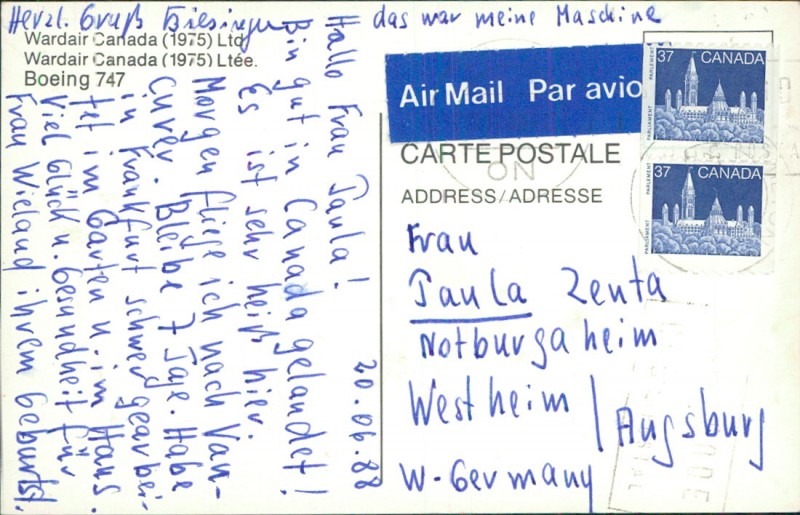 Herzl. Gruß Biesinger
das war meine Maschine
Wardair Canada (1975) Ltd.
Wardair Canada (1975) Ltée.
Boeing 747
20.06.88
Hallo Frau Paula!
Bin gut in Canada gelandet!
Es ist sehr heiß hier.
Morgen fliege ich nach Van-
cuver. Bleibe 7 Tage. Habe
in Frankfurt schwer gearbei-
tet im Garten u. im Haus.
Viel Glück u. Gesundheit für
Frau Wieland ihrem Geburtst.
Air Mail Par avio
CARTE POSTALE
ON
ADDRESS/ADRESSE
37 CANADA
PARLIAMENT PARLEMENT
37 CANADA
PARLIAMENT PARLEMENT
Frau
Paula Zenta
Notburgaheim
Westheim / Augsburg
W-Germany